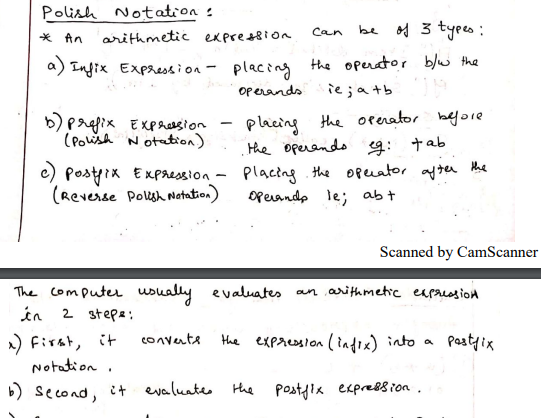 Polish Notation :
* An arithmetic expression can be of 3 types :
a) Infix Expression - placing the operator b/w the
operands ie ; a+b
b) Prefix Expression - placing the operator before
(Polish Notation) the operands eg: +ab
c) Postfix Expression - Placing the operator after the
(Reverse Polish Notation) operands ie; ab+
Scanned by CamScanner
The computer usually evaluates an arithmetic expression
in 2 steps:
a) First, it converts the expression (infix) into a postfix
Notation .
b) Second, it evaluates the postfix expression .